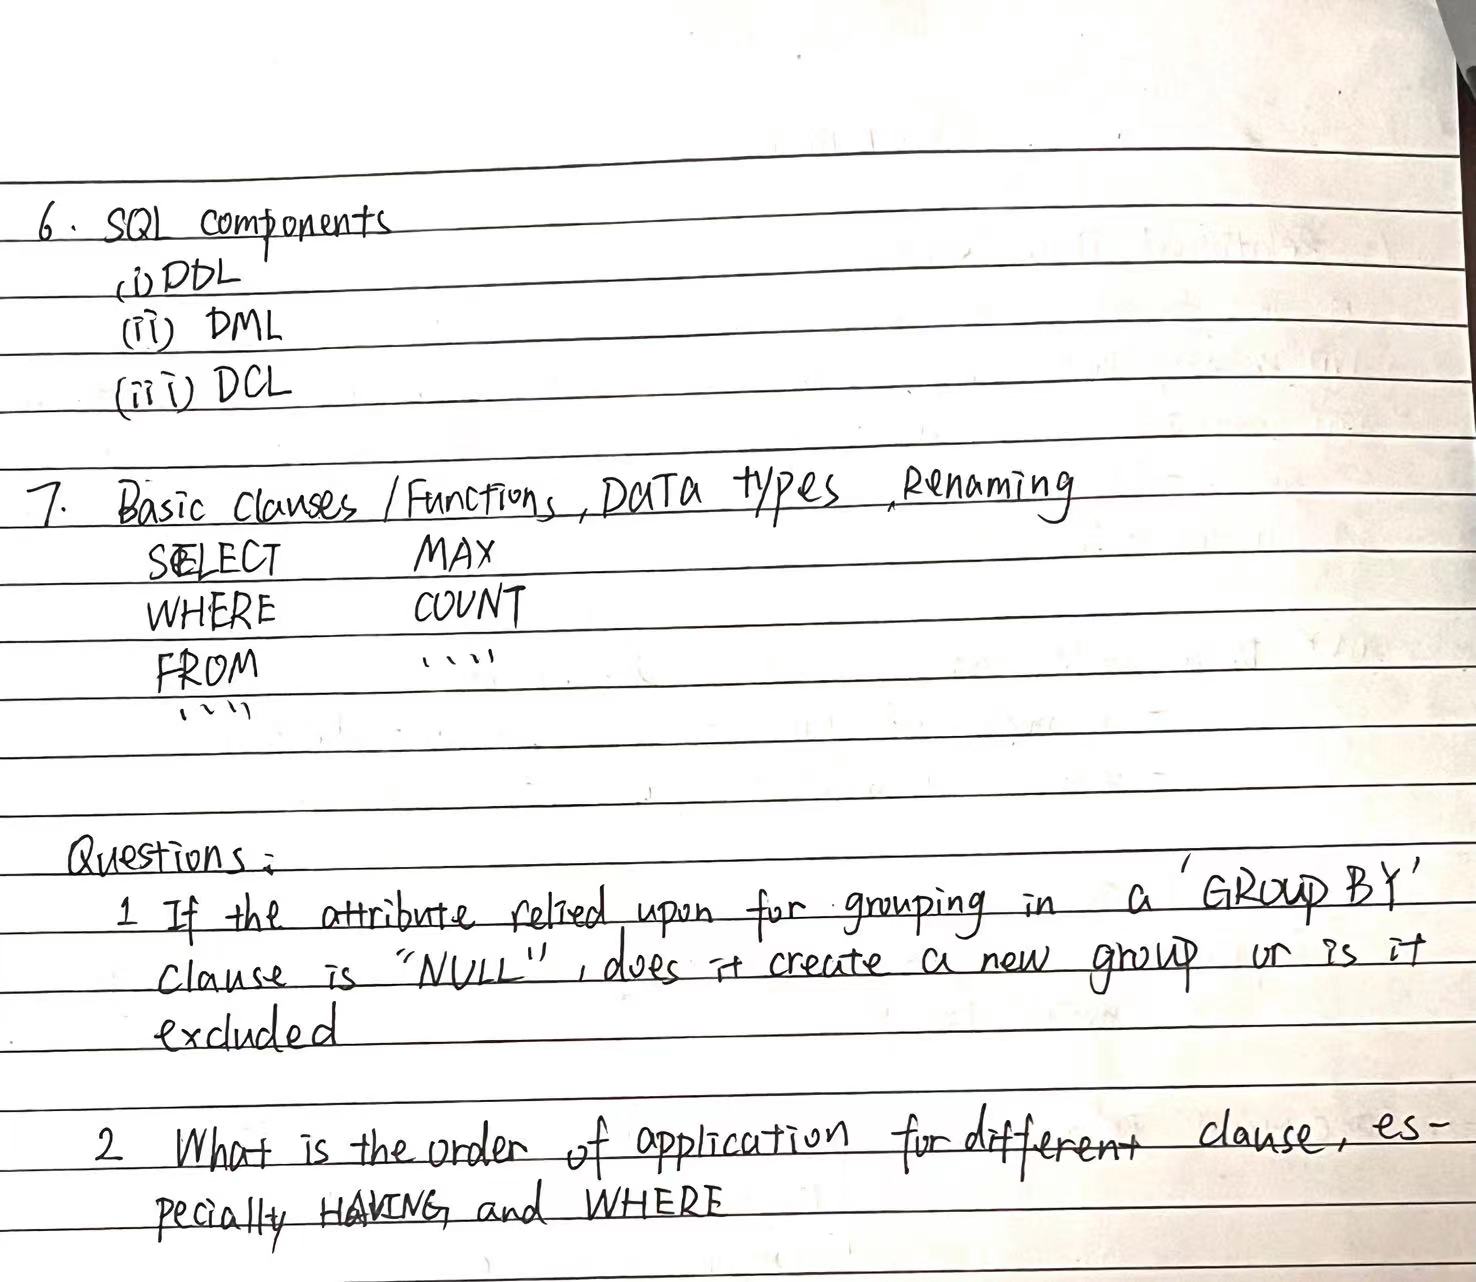 6. SQL components
(i) DDL
(ii) DML
(iii) DCL
7. Basic clauses / Functions, DATA types, Renaming
SELECT MAX
WHERE COUNT
FROM ....
....
Questions:
1 If the attribute relied upon for grouping in a 'GROUP BY'
clause is "NULL", does it create a new group or is it
excluded
2 What is the order of application for different clause, es-
pecially HAVING and WHERE